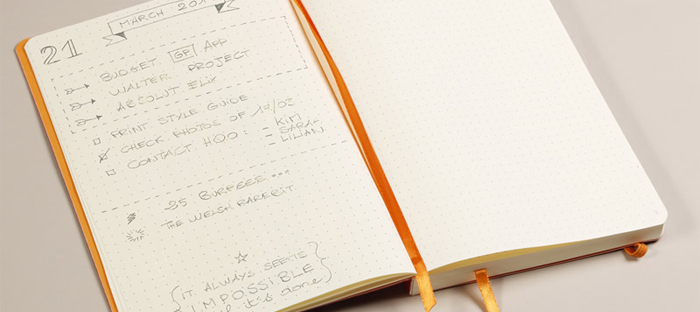 21
MARCH 201
BUDGET GP APP
WALTER PROJECT
ABSOLUT ELIX
PRINT STYLE GUIDE
CHECK PHOTOS OF 10/03
CONTACT HOO: - KIM
- SARAH
- LILIAN
35 BURPEES ...
THE WELSH RAREBIT
{IT ALWAYS SEEMS}
IMPOSSIBLE
it's done